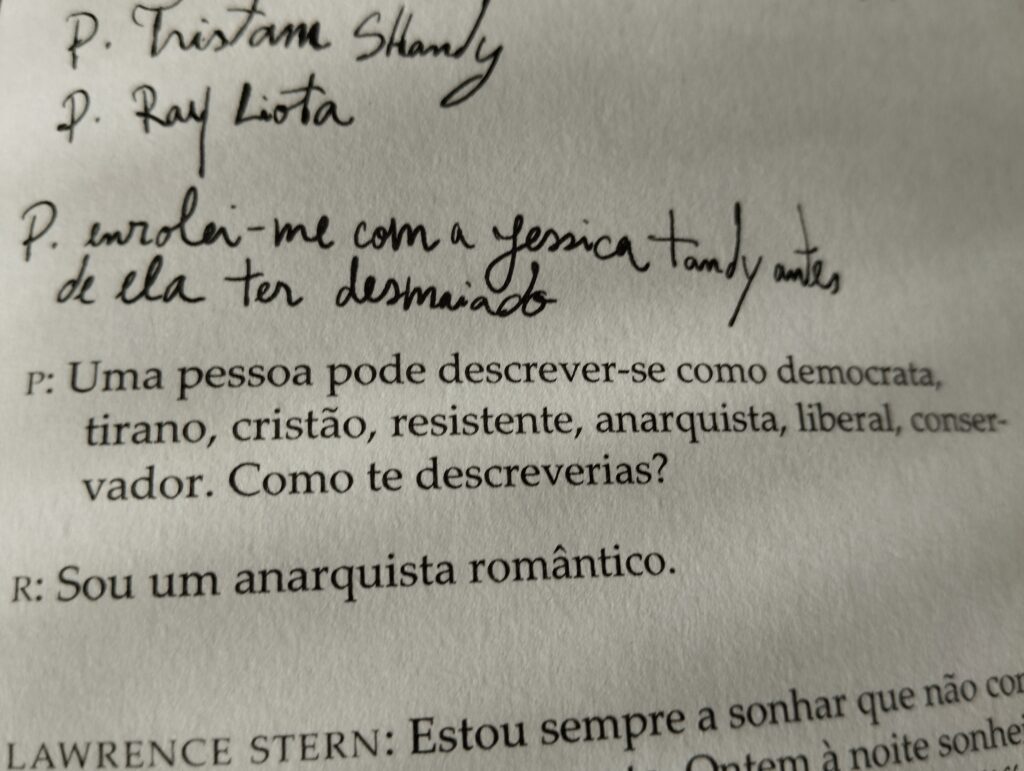 P. Tristam SHandy
P. Ray Liota
P. enrolei-me com a yessica tandy antes
de ela ter desmaiado
P: Uma pessoa pode descrever-se como democrata,
tirano, cristão, resistente, anarquista, liberal, conser-
vador. Como te descreverias?
R: Sou um anarquista romântico.
LAWRENCE STERN: Estou sempre a sonhar que não con
Ontem à noite sonhei